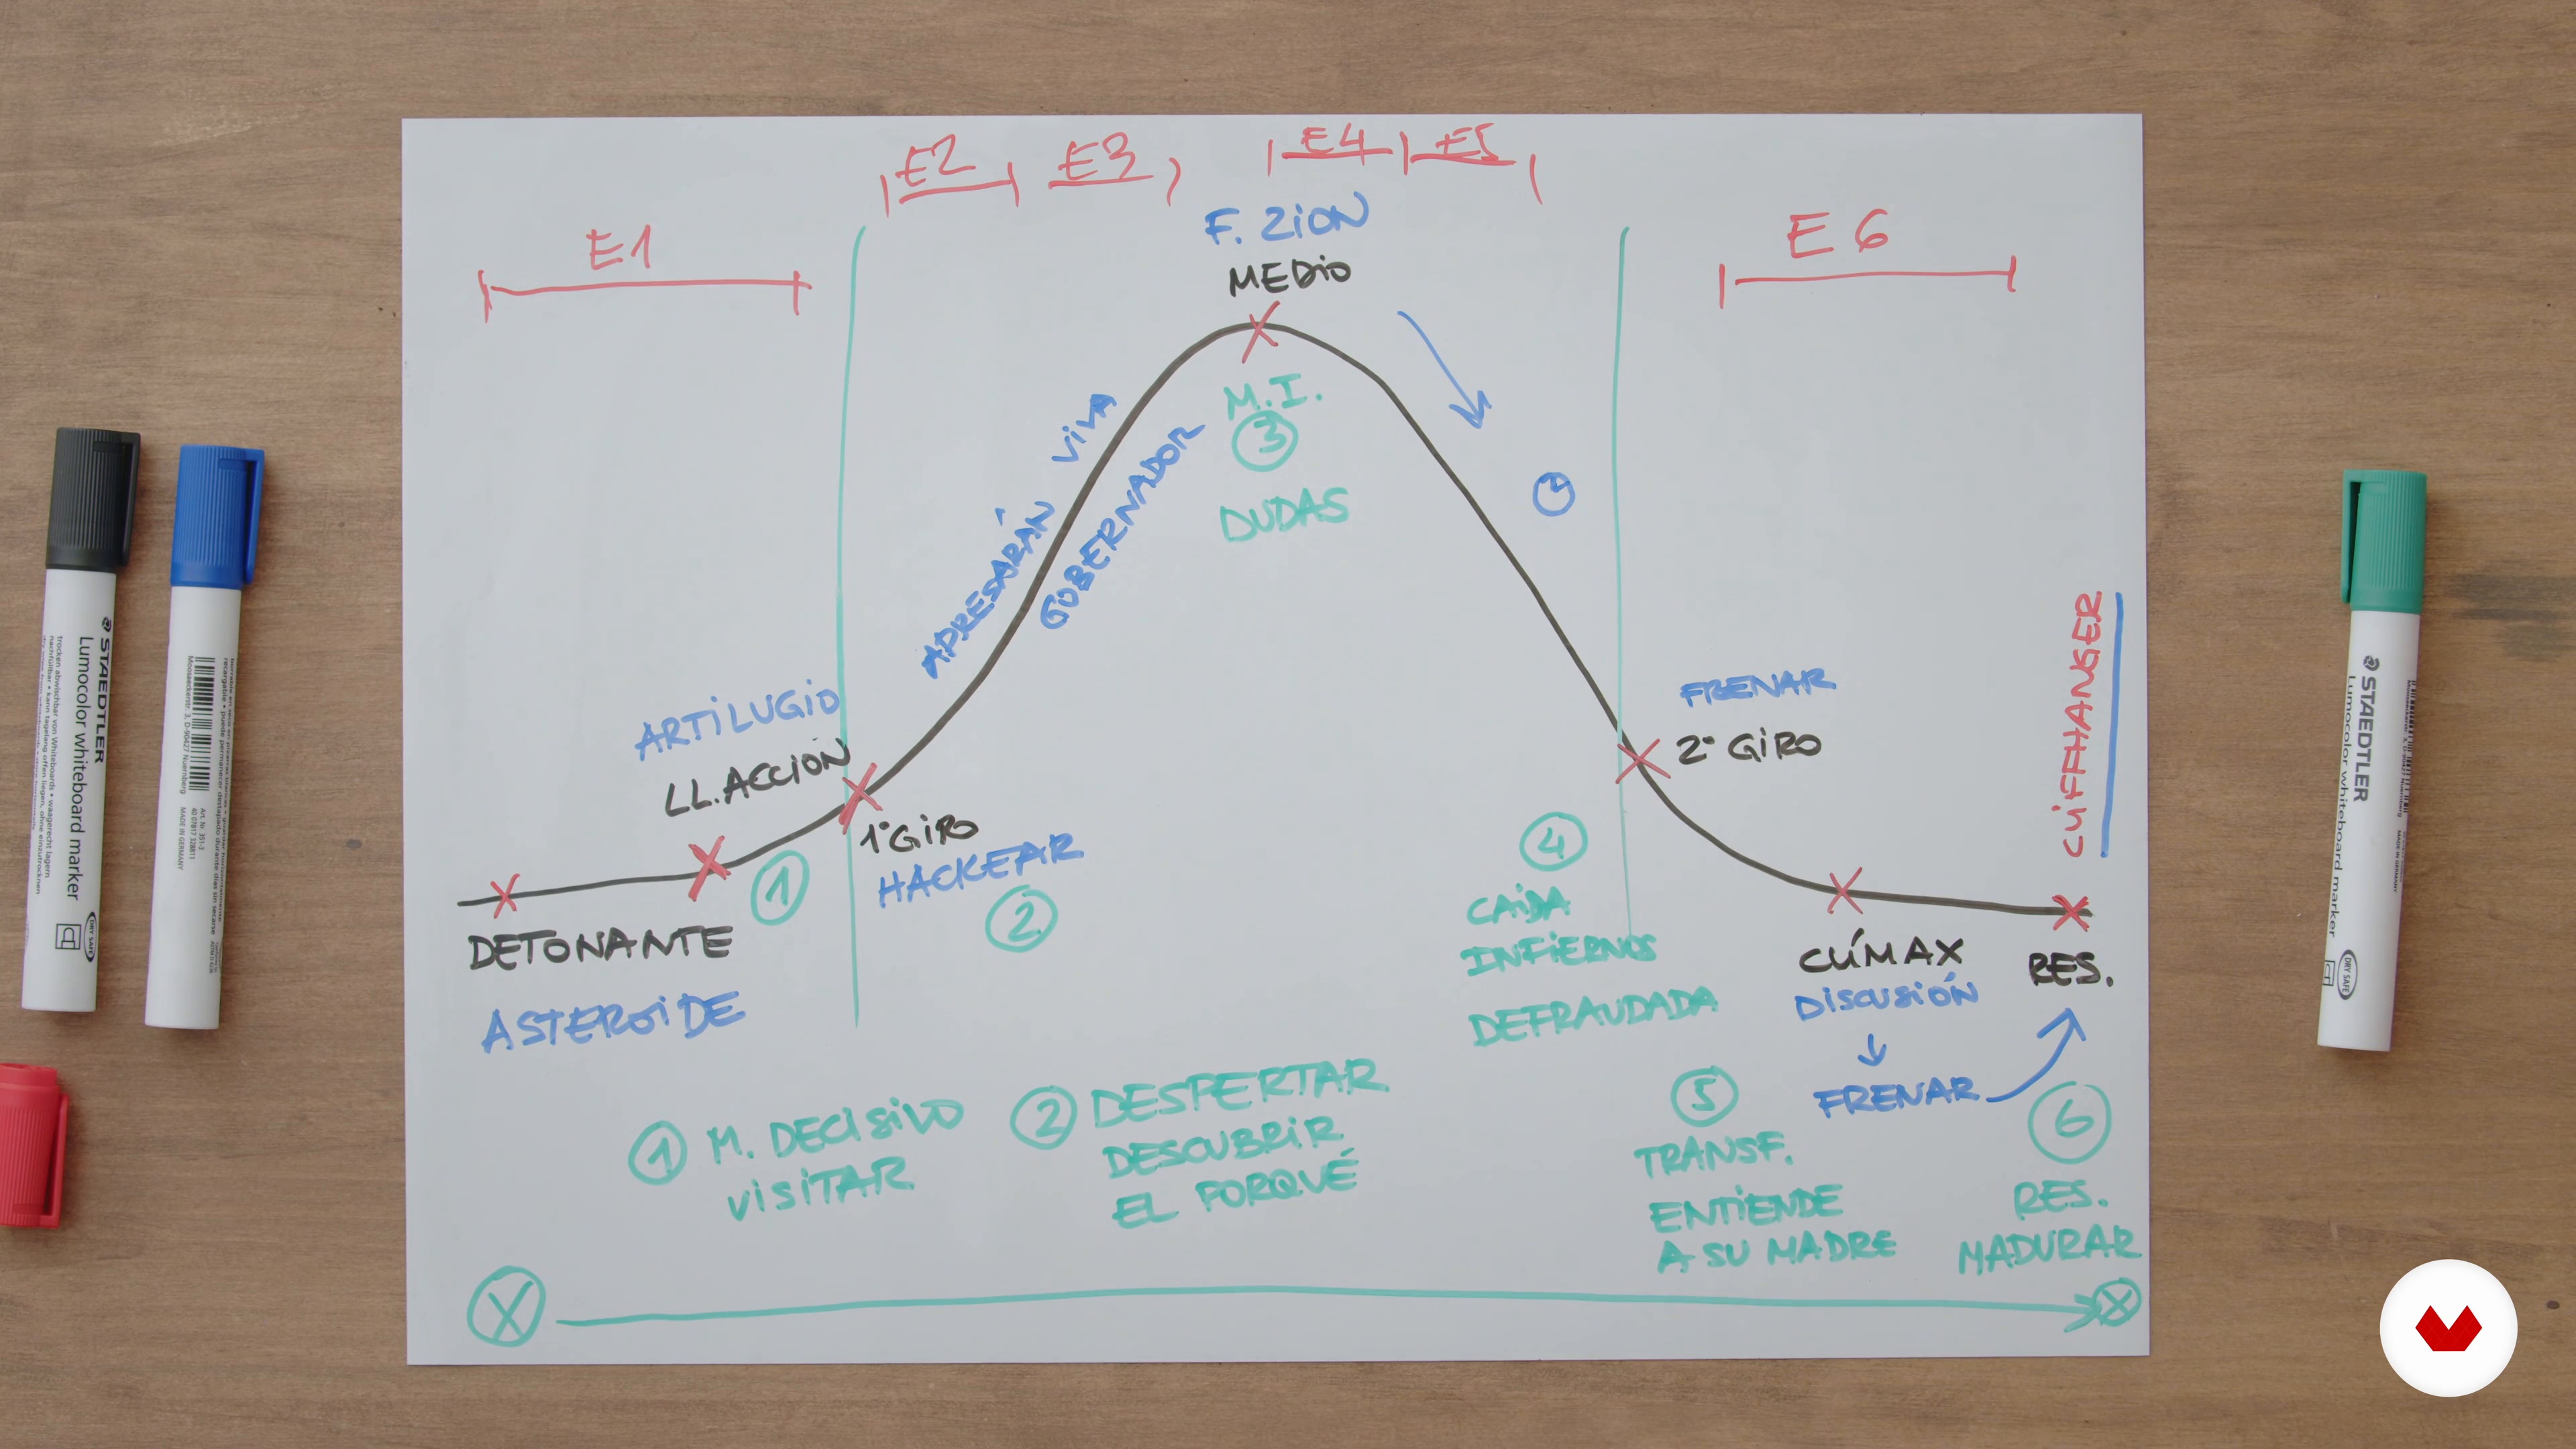 E2
E3
E4
E5
E1
E6
F. ZiON
MEDiO
M.I.
3
DUDAS
APRESARÁN VIVA
GOBERNADOR
ARTiLUGiO
LL.ACCIÓN
1º GiRO
HACKEAR
1
2
DETONANTE
ASTEROiDE
FRENAR
2º GiRO
4
CAiDA
INFiERNOS
DEFRAUDADA
CLÍMAX
DiSCUSiÓN
FRENAR
RES.
CLiFFHANGER
1 M. DECISiVO
ViSiTAR
2 DESPERTAR
DESCUBRiR
EL PORQUÉ
5
TRANSF.
ENTiENDE
A SU MADRE
6
RES.
MADURAR
X
X
STAEDTLER
Lumocolor whiteboard marker
STAEDTLER
Lumocolor whiteboard marker
DRY SAFE
DRY SAFE
MADE IN GERMANY